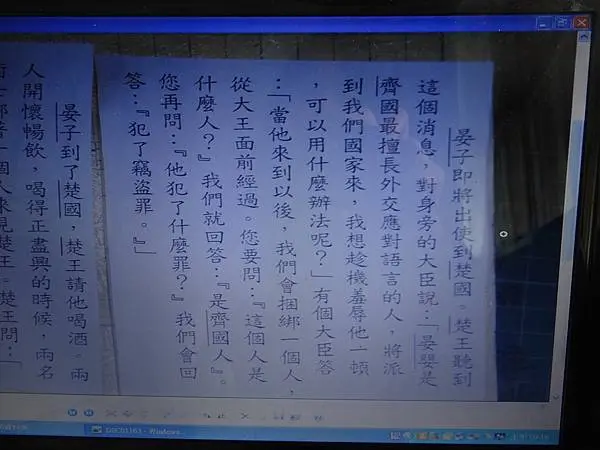 晏子即將出使到楚國。楚王聽到
這個消息，對身旁的大臣說：「晏嬰是
齊國最擅長外交應對語言的人，將派
到我們國家來，我想趁機羞辱他一頓
，可以用什麼辦法呢？」有個大臣答
：「當他來到以後，我們會捆綁一個人，
從大王面前經過。您要問：『這個人是
什麼人？』我們就回答：『是齊國人』。
您再問：『他犯了什麼罪？』我們會回
答：『犯了竊盜罪。』」
晏子到了楚國，楚王請他喝酒。兩
人開懷暢飲，喝得正盡興的時候，兩名
一個人來見楚王。楚王問：「
DSC01163 - Windows...